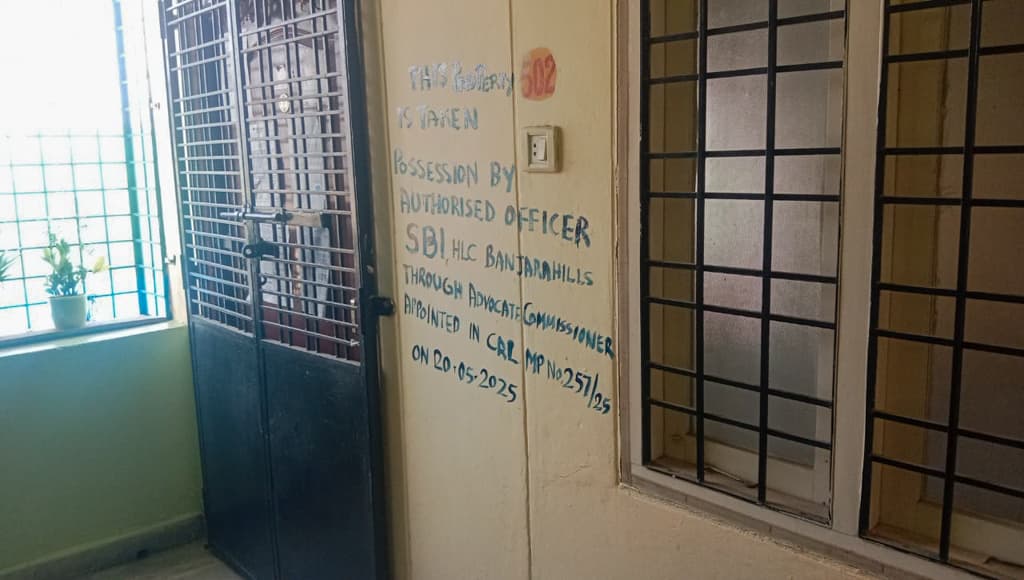 502
THIS PROPERTY
IS TAKEN
POSSESSION BY
AUTHORISED OFFICER
SBI, HLC BANJARAHILLS
THROUGH ADVOCATE COMMISSIONER
APPOINTED IN CRL MP No.257/25
ON 20.05.2025